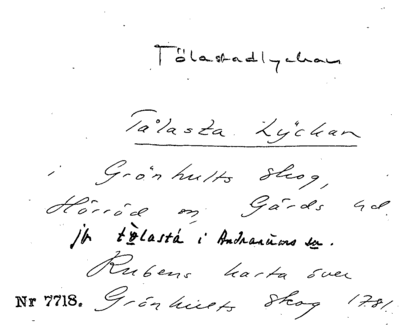 Tölastadlyckan
Tålasta Lyckan
i Grönhults skog,
Hörröd sn, Gärds hd.
jfr tölastá i Andrarums sn.
Rubens karta över
Nr 7718. Grönhults skog 1781.